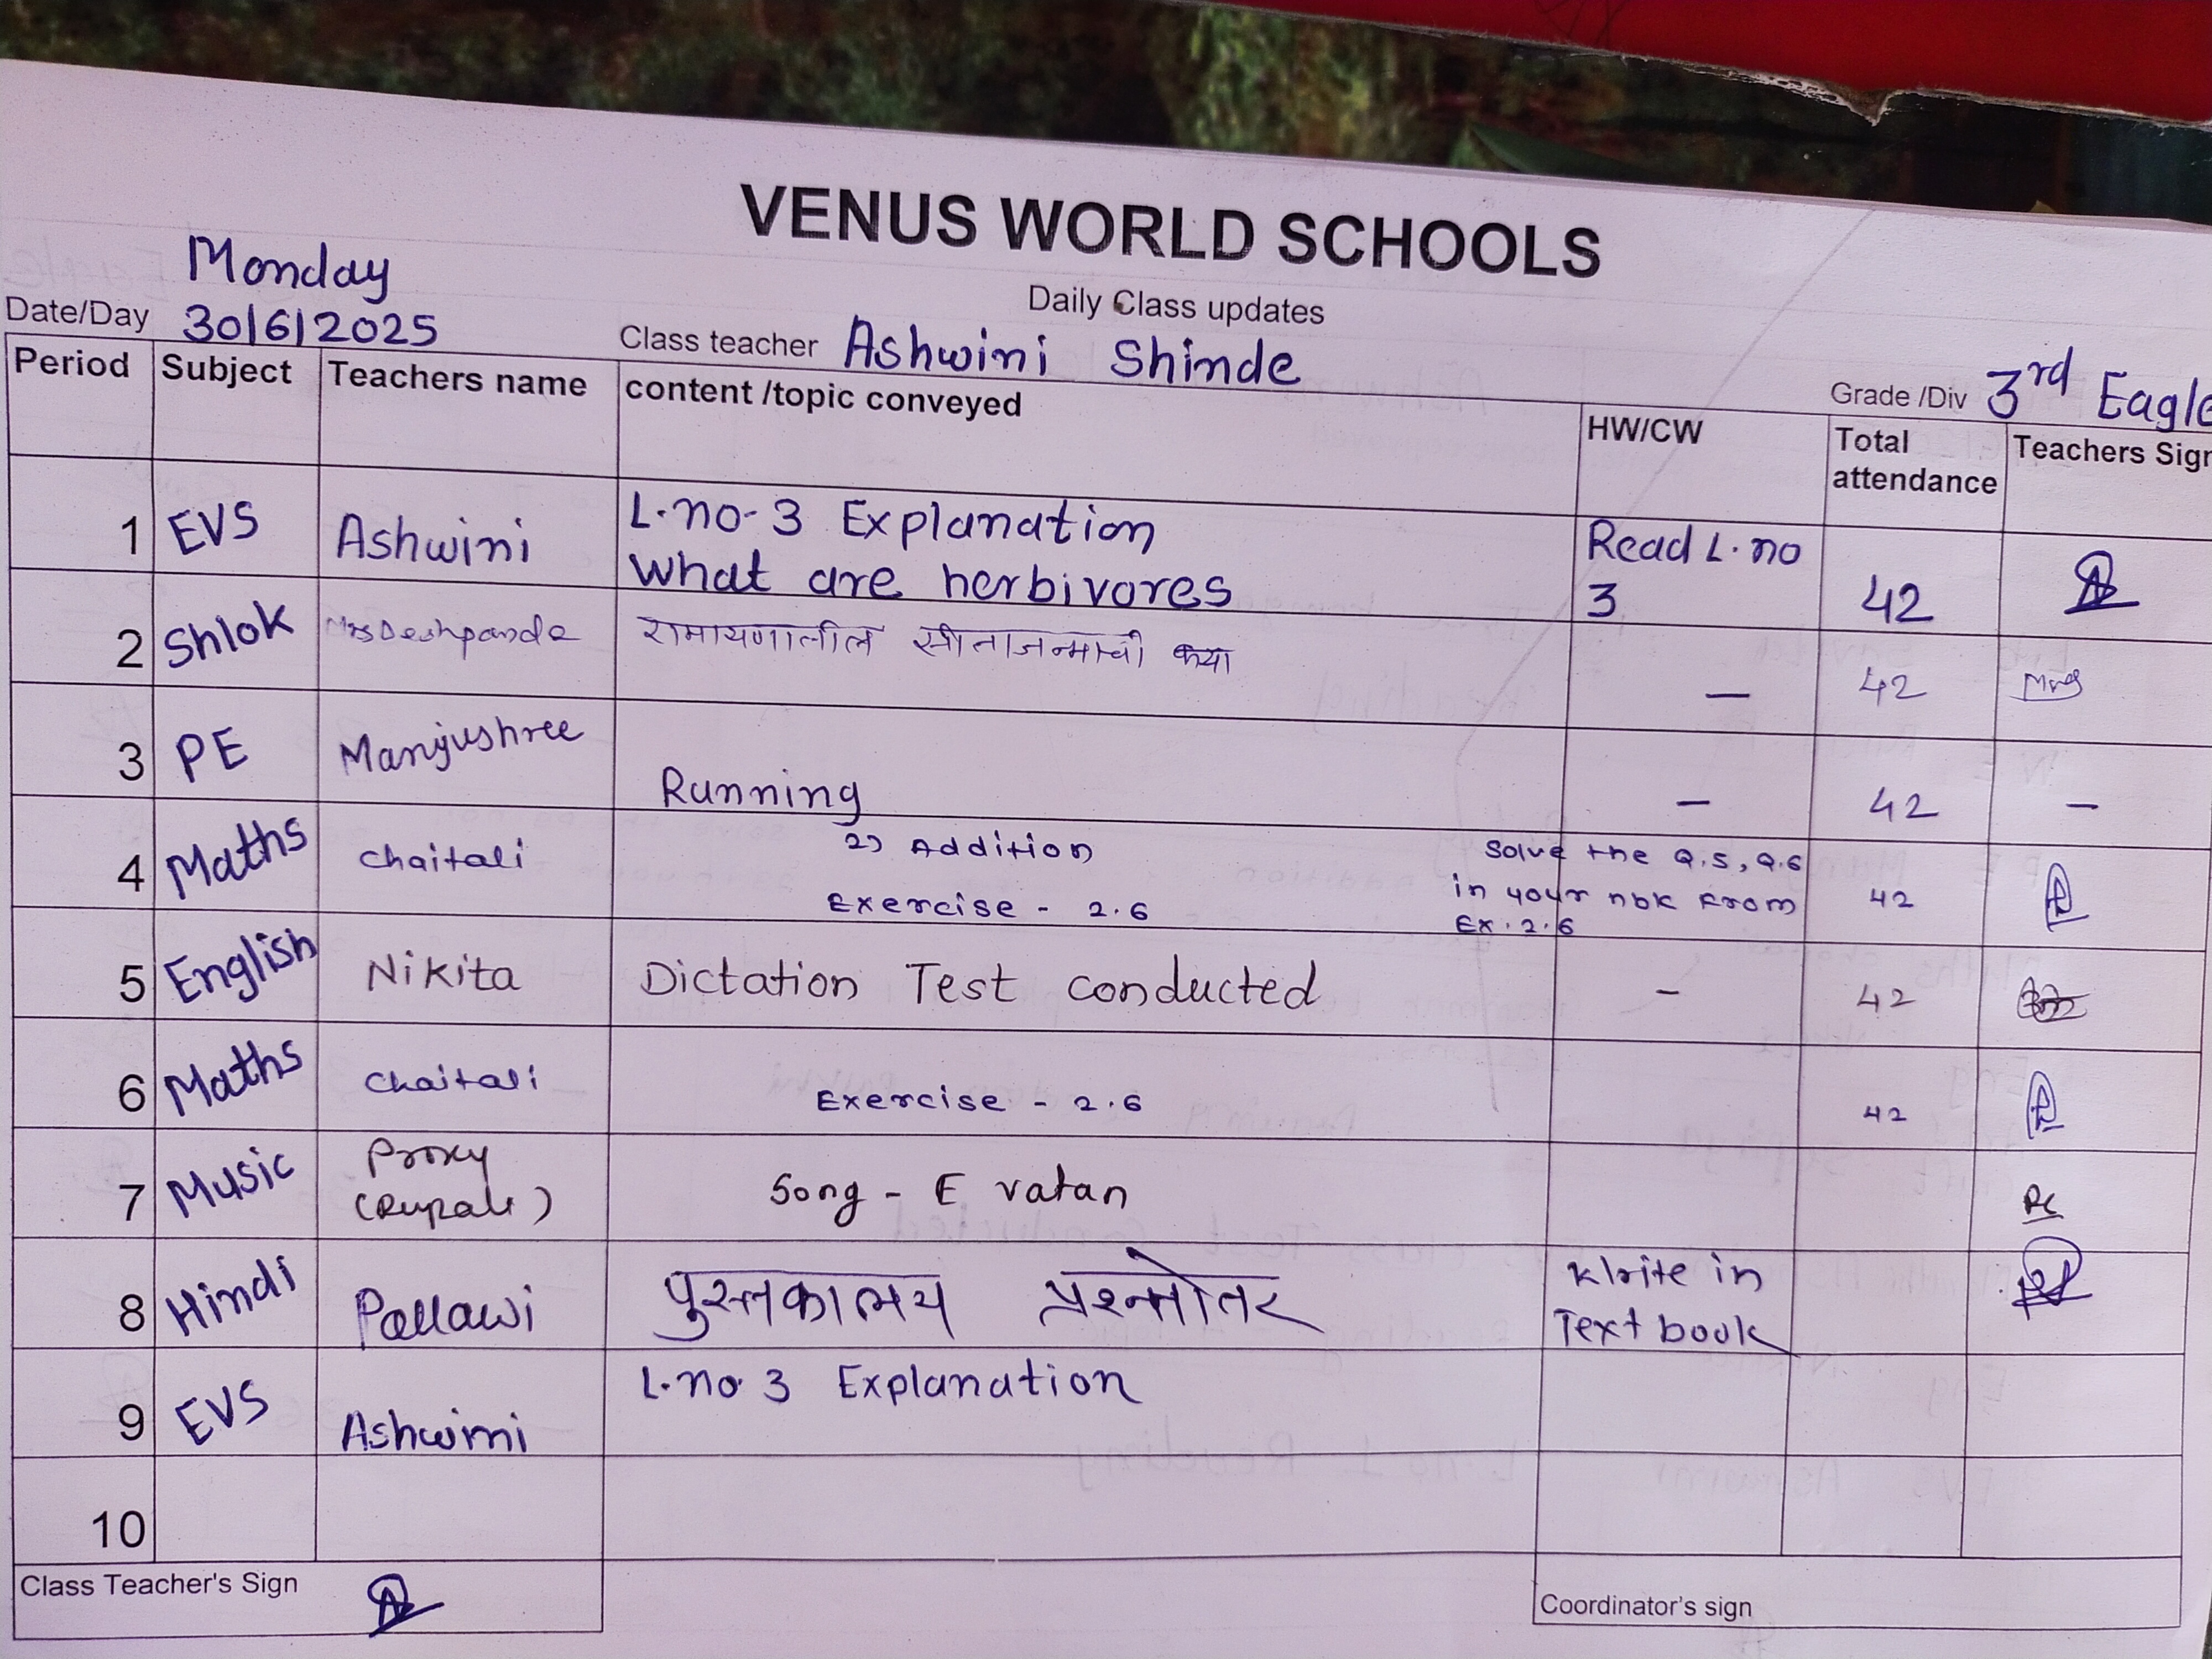 VENUS WORLD SCHOOLS
Daily Class updates
Monday
Date/Day 30/6/2025
Class teacher Ashwini Shinde
Grade /Div 3rd Eagle
Period Subject Teachers name content /topic conveyed HW/CW Total attendance Teachers Sign
1 EVS Ashwini L.no-3 Explanation
What are herbivores
Read L.no
3
42
2 Shlok Mrs Deshpande रामायणातील सीताजन्माची कथा — 42
3 PE Manjushree Running — 42 —
4 Maths Chaitali 2) Addition
Exercise - 2.6
Solve the Q.5, Q.6
in your nbk from
Ex. 2.6
42
5 English Nikita Dictation Test conducted - 42
6 Maths Chaitali Exercise - 2.6 42
7 Music Proxy
(Rupali)
Song - E vatan
8 Hindi Pallawi पुस्तकालय प्रश्नोत्तर
Write in
Text book
9 EVS Ashwini L.no. 3 Explanation
10
Class Teacher's Sign
Coordinator's sign